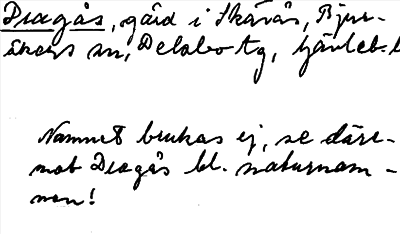 Dragås, gård i Skårås, Bjur-
åkers sn, Delsbo tg, Gävleb. l
Namnet brukas ej, se däre-
mot Dragås bl. naturnam-
nen!